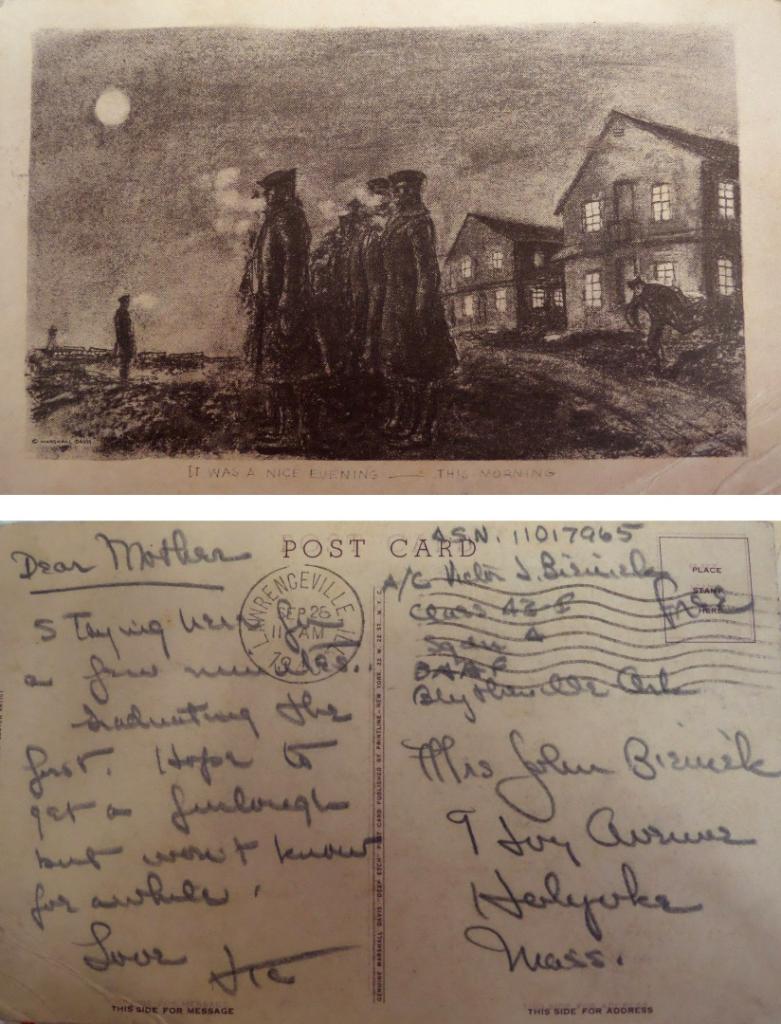 © MARSHALL DAVIS
IT WAS A NICE EVENING — THIS MORNING
POST CARD
Dear Mother
Staying here for
a few minutes.
Graduating the
first. Hope to
get a furlough
but won't know
for awhile.
Love Vic
THIS SIDE FOR MESSAGE
LAWRENCEVILLE ILL
SEP 26
11 AM
GENUINE MARSHALL DAVIS "DEEP ETCH" POST CARD PUBLISHED BY PRINTLINE - NEW YORK. 22 W. 22 ST. N.Y.C.
ASN. 11017965
A/C Victor J. Bieniek
Class 42 I
Sqdn A
BAAF
Blytheville Ark
PLACE
STAMP
HERE
Free
Mrs John Bieniek
9 Ivy Avenue
Holyoke
Mass.
THIS SIDE FOR ADDRESS